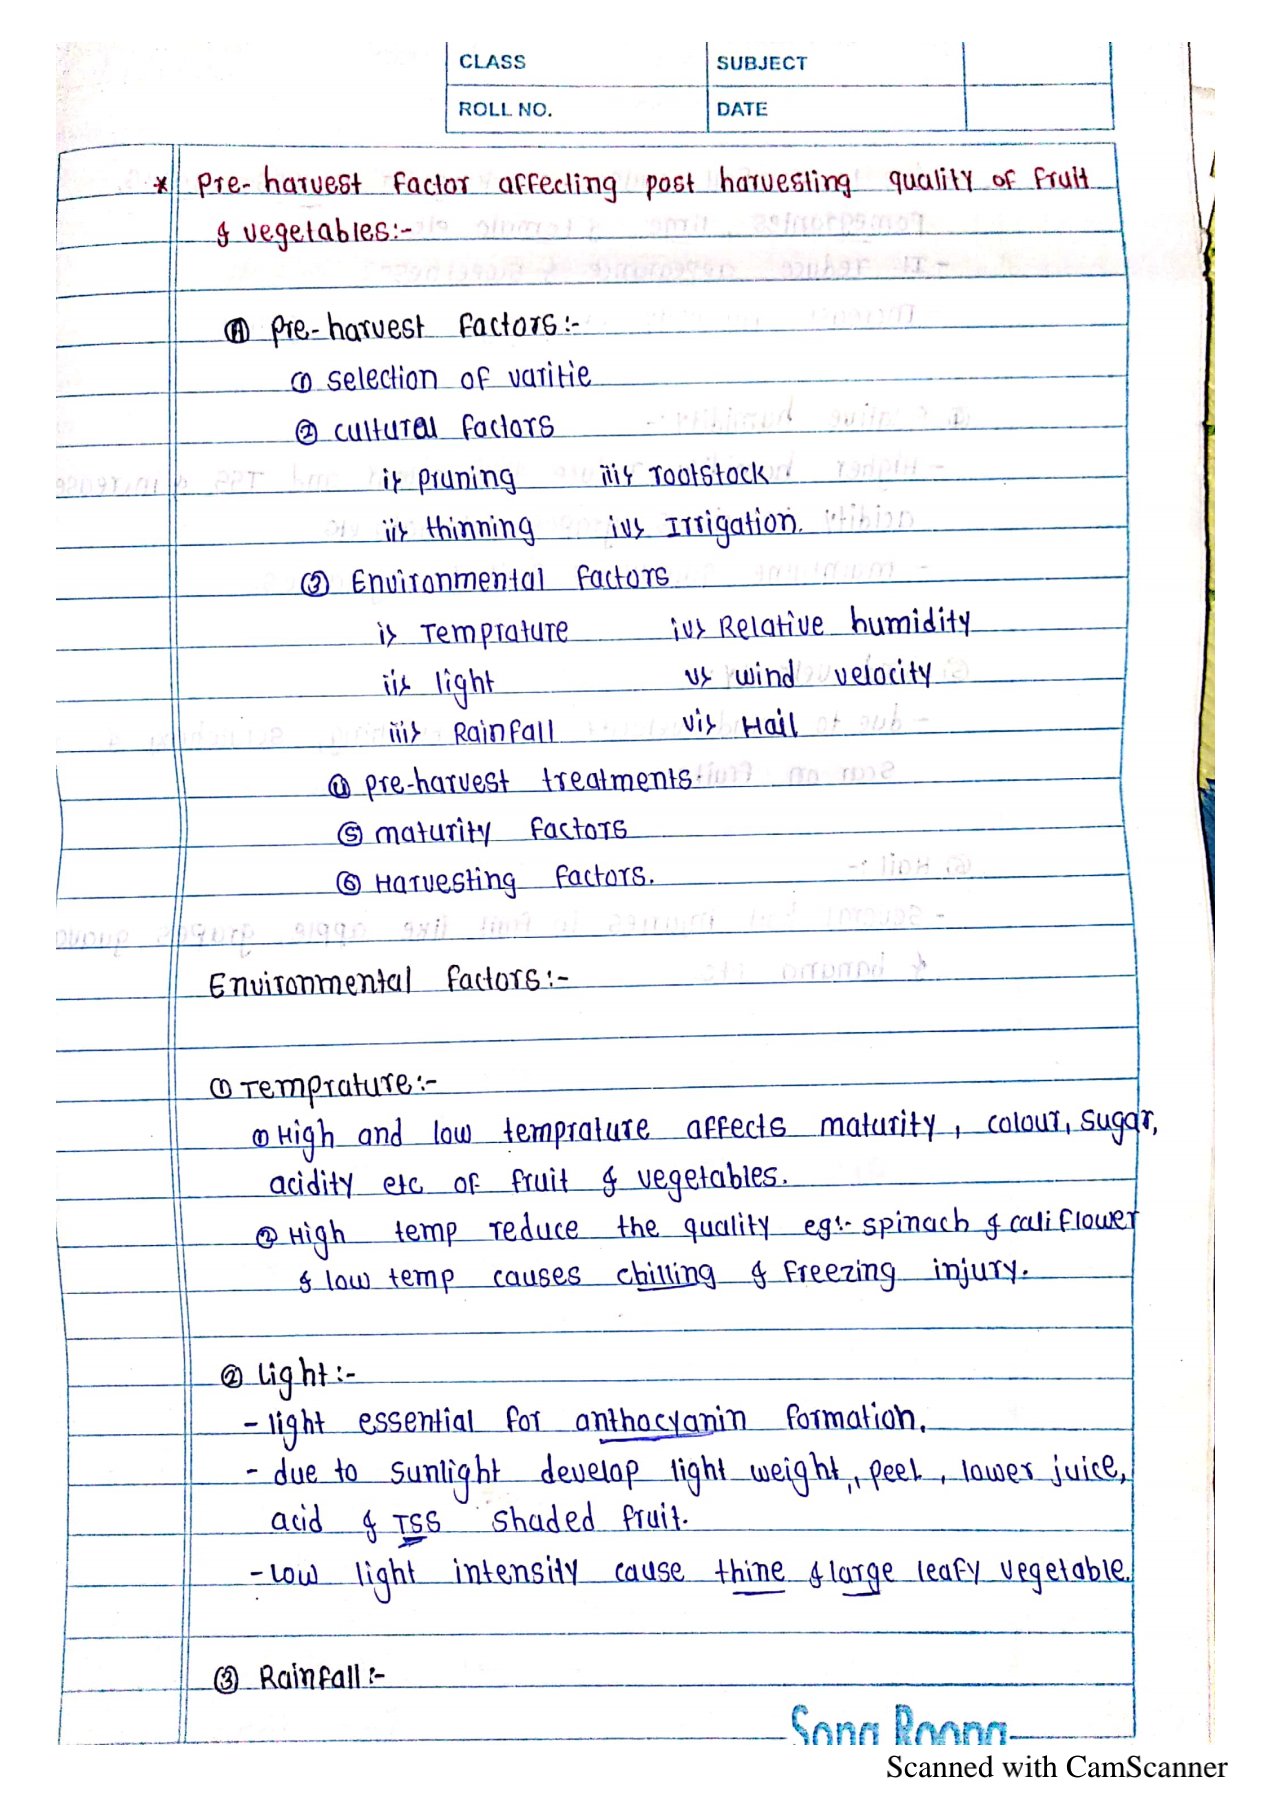 CLASS SUBJECT
ROLL NO. DATE
* Pre-harvest factor affecting post harvesting quality of fruit
& vegetables:-
(A) Pre-harvest factors:-
(1) Selection of varitie
(2) cultural factors
i> pruning iii> rootstock
ii> thinning iv> Irrigation.
(3) Environmental factors
i> Temprature iv> Relative humidity
ii> light v> wind velocity
iii> Rainfall vi> Hail
(4) pre-harvest treatments
(5) maturity factors
(6) Harvesting factors.
Environmental factors:-
(1) Temprature:-
(1) High and low temprature affects maturity, colour, sugar,
acidity etc of fruit & vegetables.
(2) High temp reduce the quality eg:- spinach & califlower
& low temp causes chilling & freezing injury.
(2) Light:-
- light essential for anthocyanin formation.
- due to sunlight develop light weight, peel, lower juice,
acid & TSS shaded fruit.
- Low light intensity cause thine & large leafy vegetable.
(3) Rainfall:-
Scanned with CamScanner